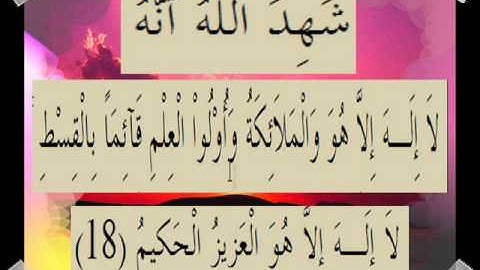 شَهِدَ اللّهُ أَنَّهُ
لاَ إِلَـهَ إِلاَّ هُوَ وَالْمَلاَئِكَةُ وَأُوْلُواْ الْعِلْمِ قَآئِمَاً بِالْقِسْطِ
لاَ إِلَـهَ إِلاَّ هُوَ الْعَزِيزُ الْحَكِيمُ (18)